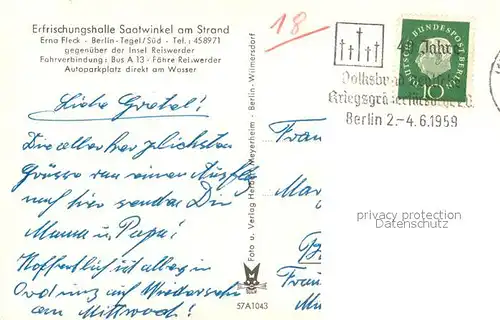 Erfrischungshalle Saatwinkel am Strand
Erna Fleck - Berlin-Tegel/Süd - Tel.: 458971
gegenüber der Insel Reiswerder
Fahrverbindung: Bus A 13 - Fähre Reiswerder
Autoparkplatz direkt am Wasser
Liebe Gretel!
Die aller herzlichsten
Grüsse von einem Ausflug
nach hier senden Dir
Mama u. Papa!
Hoffentlich ist alles in
Ordnung auf Wiedersehn
am Mittwoch!
Foto u. Verlag Herbert Meyerheim - Berlin-Wilmersdorf
57A1043
18
40 Jahre
Volksbund Deutsche
Kriegsgräberfürsorge e.V.
Berlin 2.-4.6.1959
DEUTSCHE BUNDESPOST BERLIN
10
Frau
Mar
Frau
privacy protection
Datenschutz